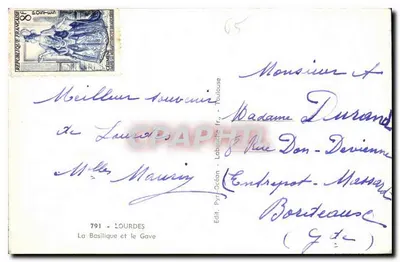 RÉPUBLIQUE FRANÇAISE
8F
POSTES
65
Meilleur souvenir
de Lourdes
Mlles Maurin
791 - LOURDES
La Basilique et le Gave
Edit. Pyr. Océan - Labouche Fr. - Toulouse
CPAPHIL
Monsieur &
Madame Durand
8 Rue Don-Devienne
(Entrepot-Massard
Bordeaux
(Gde)